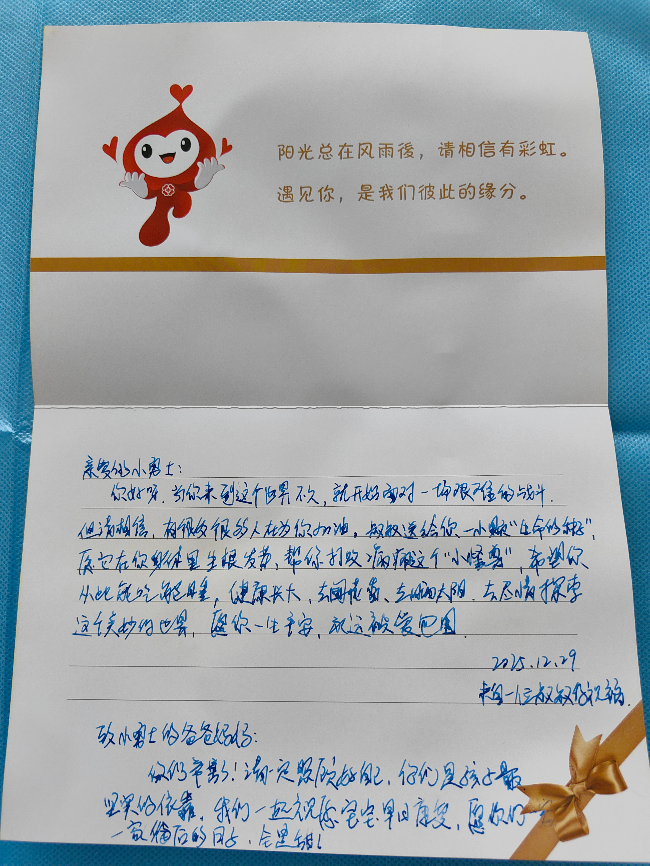 阳光总在风雨後，请相信有彩虹。
遇见你，是我们彼此的缘分。
亲爱的小勇士：
你好呀．当你来到这个世界不久，就开始面对一场艰难的战斗．
但请相信，有很多很多人在为你加油，叔叔送给你一小颗“生命的种子”，
愿它在你身体里生根发芽，帮你打败病痛这个“小怪兽”，希望你
从此能吃能睡，健康长大，去闻花香、去晒太阳．去尽情探索
这个美妙的世界，愿你一生平安，永远被爱包围．
2025.12.29
来自一位叔叔的祝福．
致小勇士的爸爸妈妈：
你们辛苦了！请一定照顾好自己，你们是孩子最
坚实的依靠．我们一起祝愿宝宝早日康复，愿你们一家
往后的日子，全是甜！